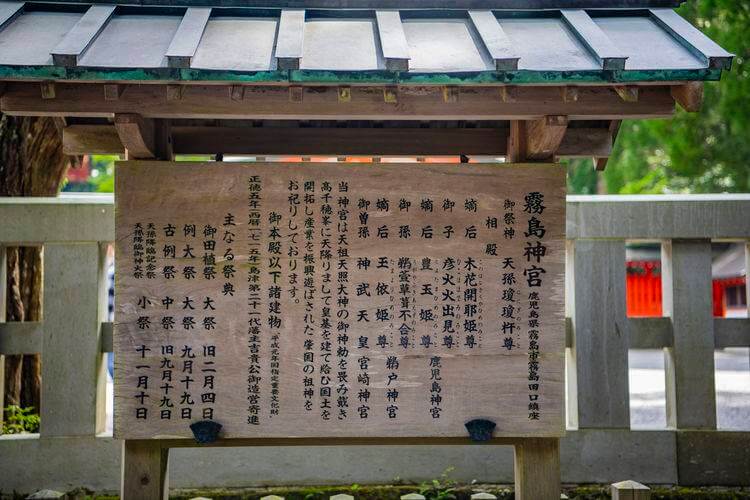 霧島神宮 鹿児島県霧島市霧島田口鎮座
御祭神 天孫瓊瓊杵尊
相殿
嫡后 木花開耶姫尊
御子 彦火火出見尊
嫡后 豊玉姫尊 鹿児島神宮
御孫 鵜萱草葺不合尊
嫡后 玉依姫尊 鵜戸神宮
御曽孫 神武天皇 宮崎神宮
当神宮は天祖天照大神の御神勅を畏み戴き
高千穂峯に天降りまして皇基を建て給ひ国土を
開拓し産業を振興遊ばされた肇国の祖神を
お祀りしております。
御本殿以下諸建物 平成元年国指定重要文化財
正徳五年(西暦一七一五年)島津第二十一代藩主吉貴公御造営寄進
主なる祭典
御田植祭 大祭 旧二月四日
例大祭 大祭 九月十九日
古例祭 中祭 旧九月十九日
天孫降臨記念祭
天孫降臨御神火祭 小祭 十一月十日